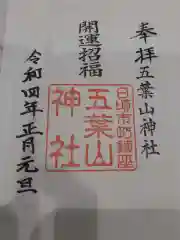 奉拝五葉山神社
開運招福
日頃市町鎮座
五葉山
神社
令和四年正月元旦